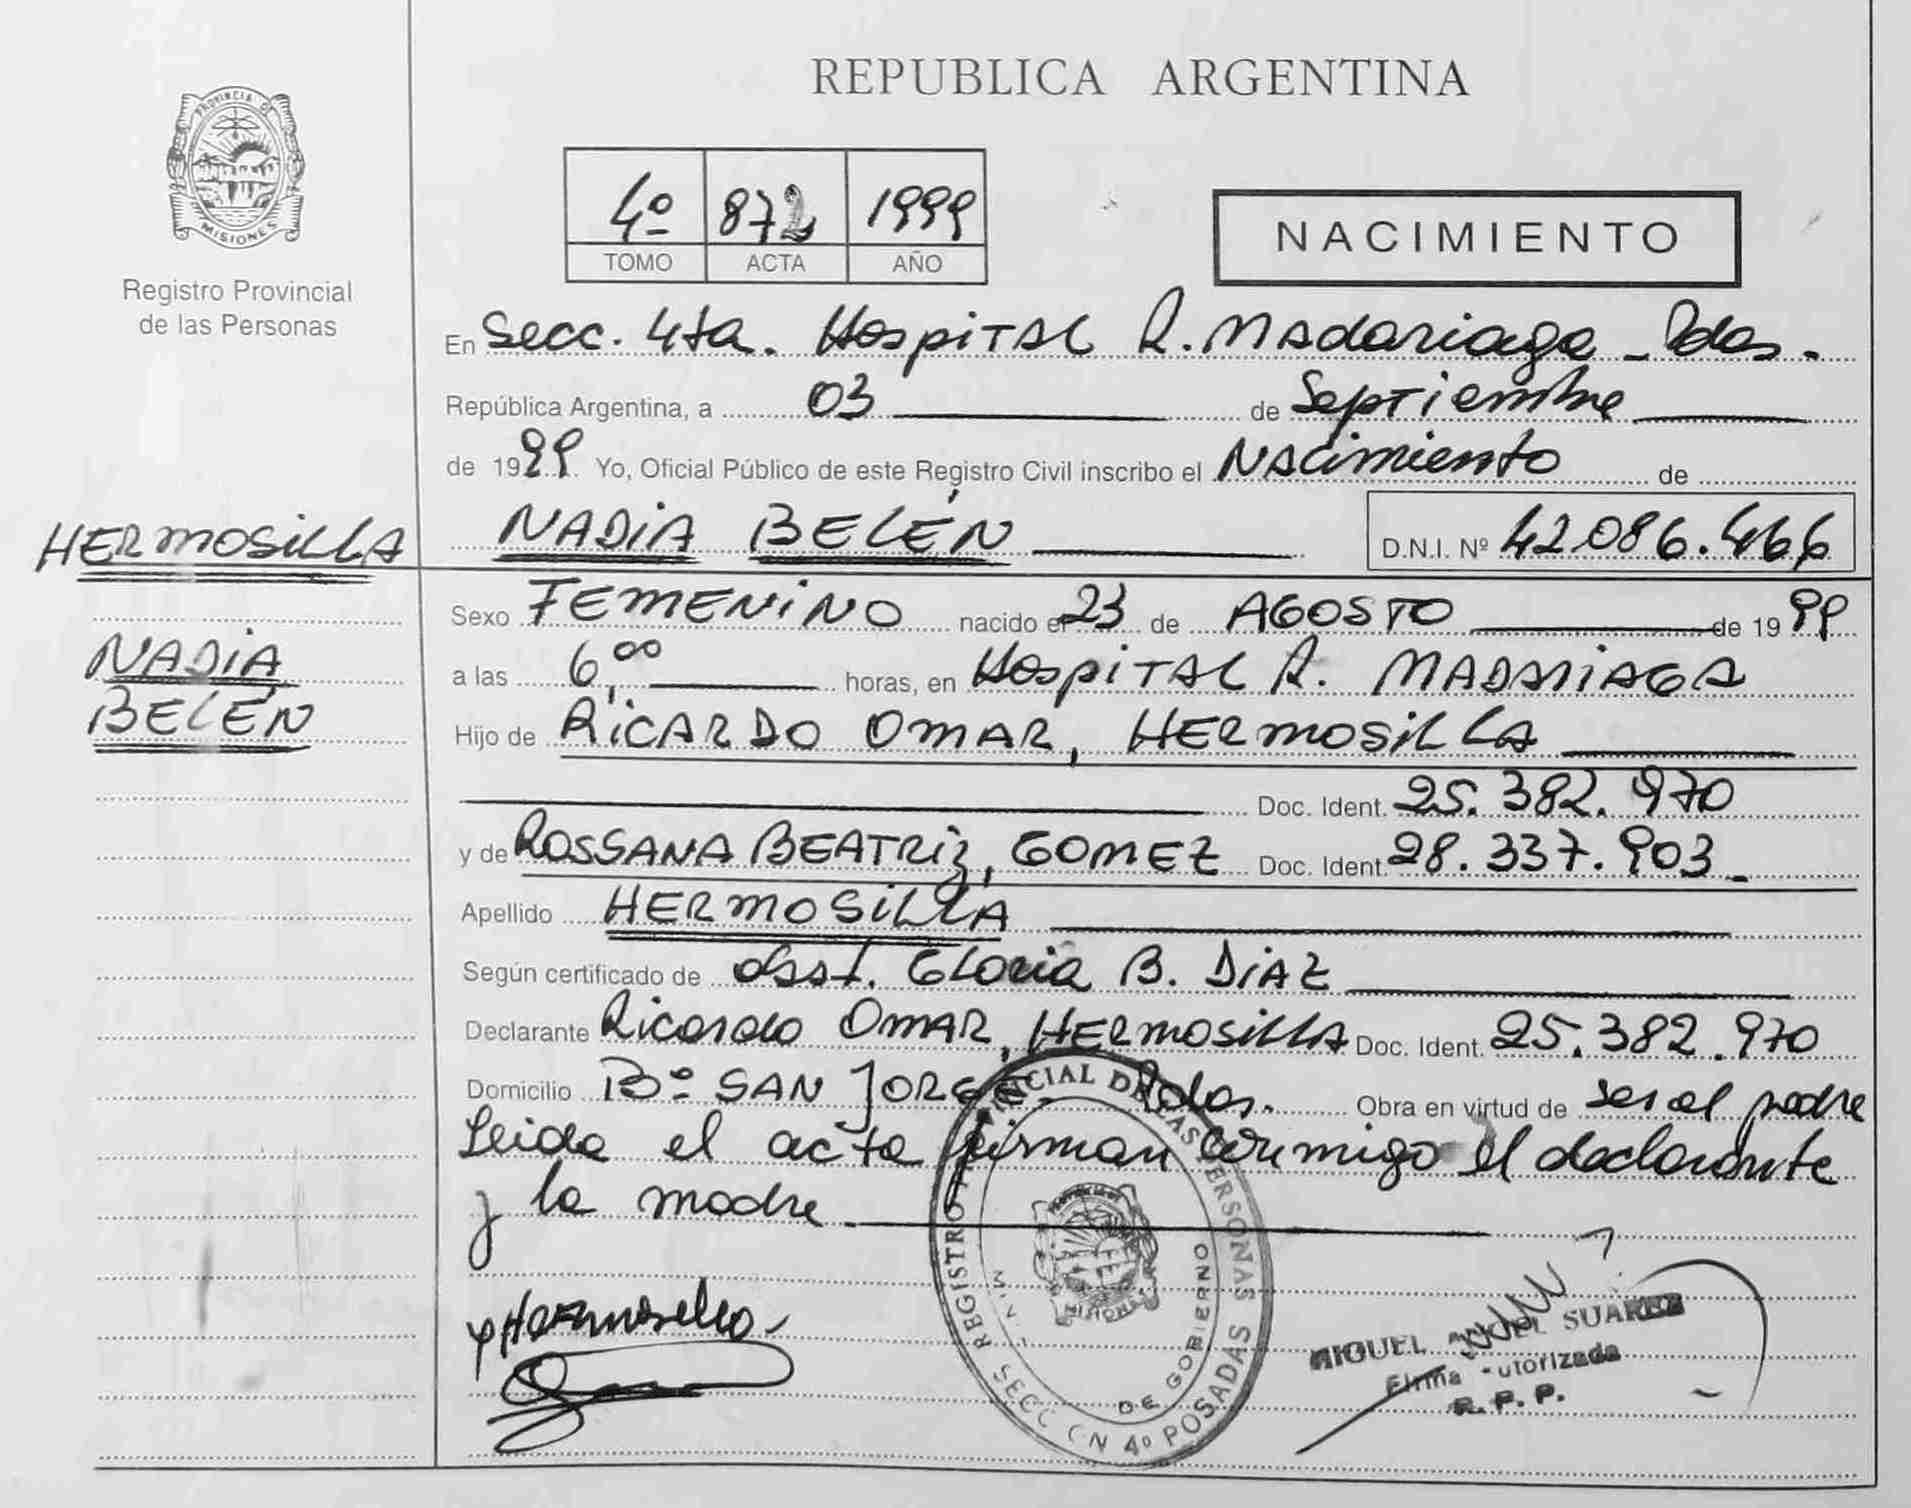 REPUBLICA ARGENTINA
PROVINCIA DE
MISIONES
Registro Provincial
de las Personas
4º 872 1999
TOMO ACTA AÑO
NACIMIENTO
En Secc. 4ta. Hospital R. Madariaga - Pdas.
República Argentina, a 03 de Septiembre
de 1999. Yo, Oficial Público de este Registro Civil inscribo el Nacimiento de
HERMOSILLA
NADIA BELÉN
NADIA BELÉN D.N.I. Nº 42.086.466
Sexo FEMENINO nacido el 23 de AGOSTO de 1999
a las 6,00 horas, en Hospital R. MADARIAGA
Hijo de RICARDO OMAR, HERMOSILLA
Doc. Ident. 25.382.970
y de ROSSANA BEATRIZ, GOMEZ Doc. Ident. 28.337.903
Apellido HERMOSILLA
Según certificado de Obst. Gloria B. DIAZ
Declarante Ricardo OMAR, HERMOSILLA Doc. Ident. 25.382.970
Domicilio Bº SAN JORGE - Pdas. Obra en virtud de ser el padre
Leida el acta firman conmigo el declarante
y la madre
Hermosilla
REGISTRO PROVINCIAL DE LAS PERSONAS
SECC. 4º POSADAS
DE GOBIERNO
MISIONES
MIGUEL ANGEL SUAREZ
Firma Autorizada
R. P. P.